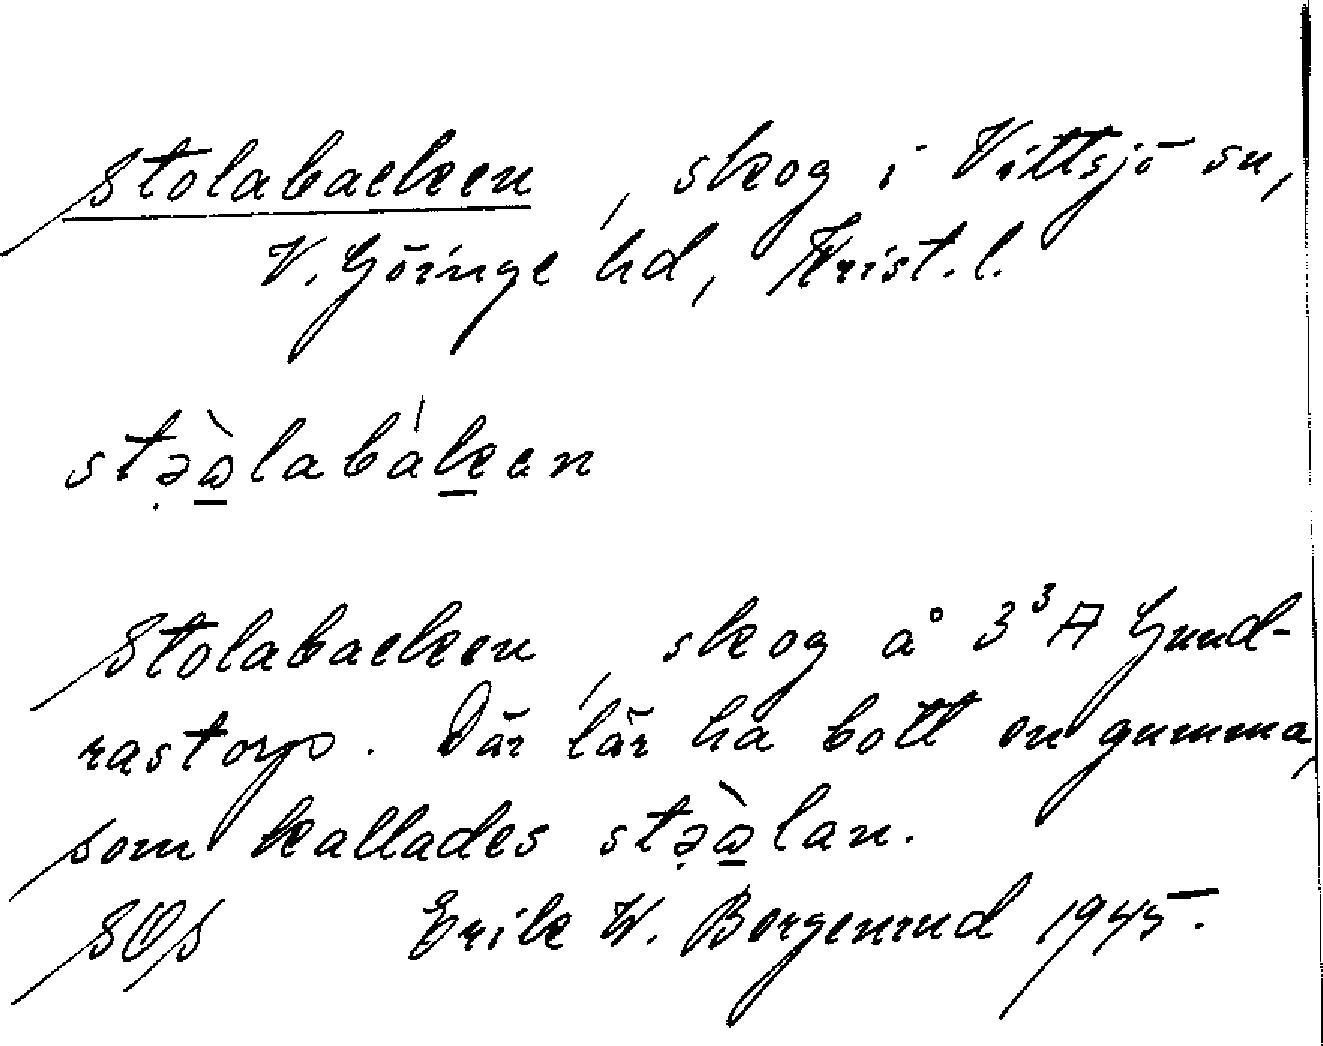 Stolabacken, skog i Vittsjö sn,
V. Göinge hd, Krist. l.
stə̣ὼ̲labák̲an
Stolabacken, skog å 3³ A Gund-
rastorp. Där lär ha bott en gumma,
som kallades stə̣ὼ̲lan.
SOS Erik W. Bergenrud 1945.